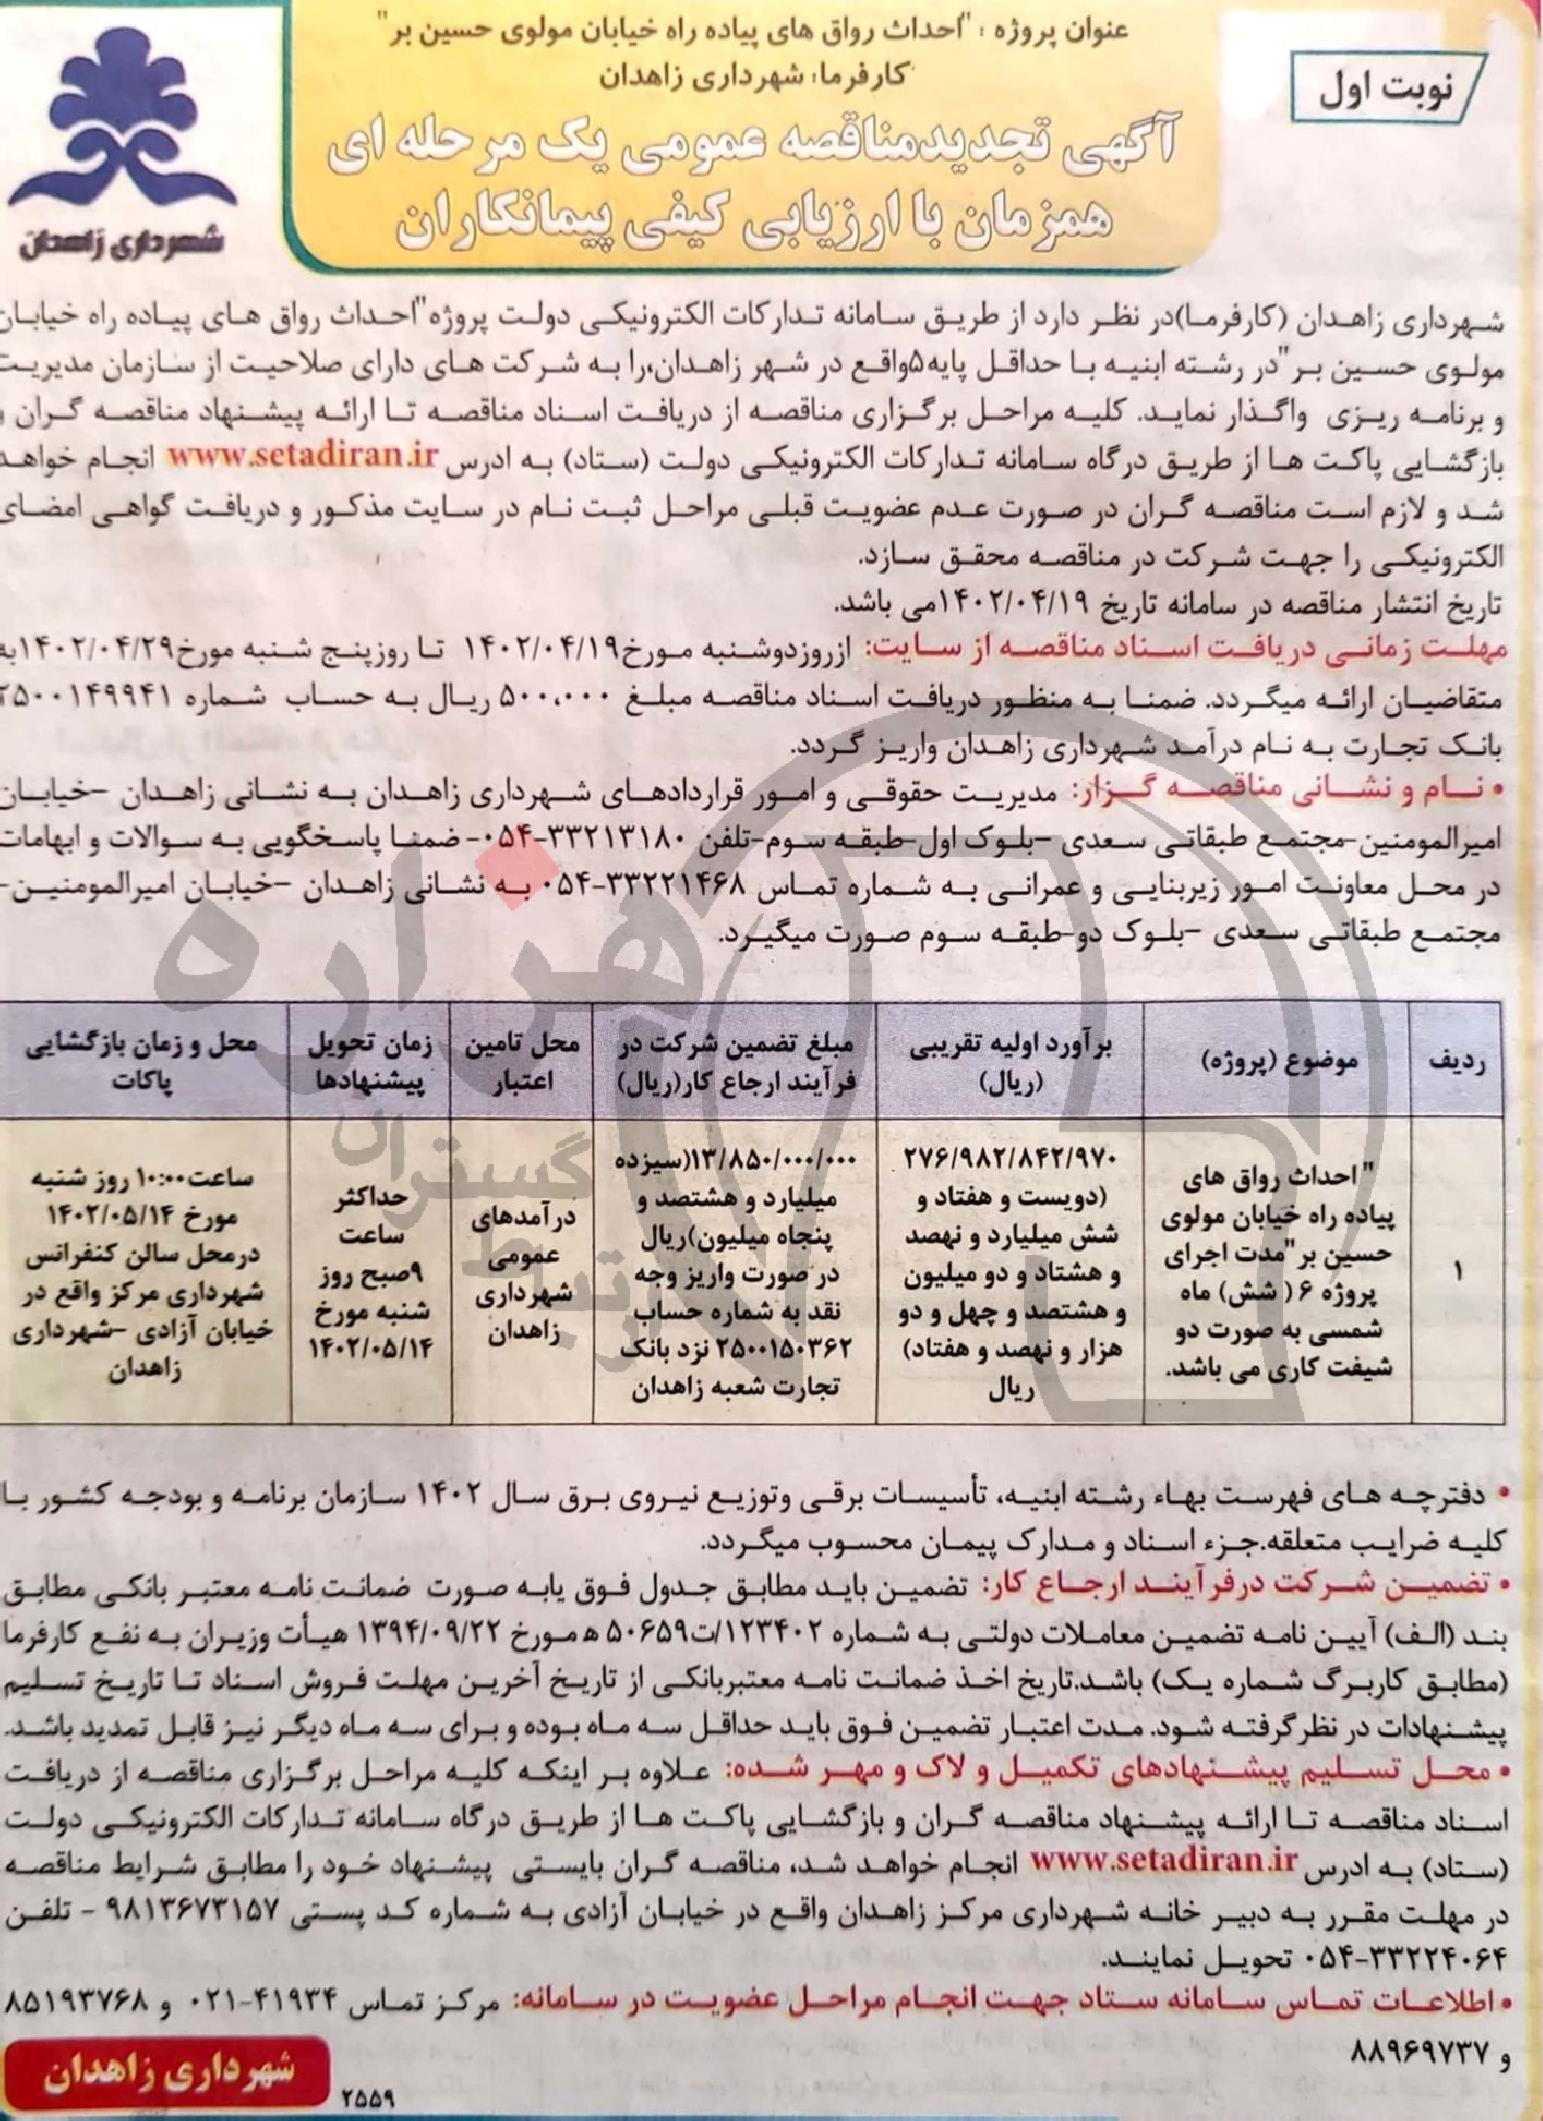 عنوان پروژه : "احداث رواق های پیاده راه خیابان مولوی حسین بر"
کارفرما: شهرداری زاهدان
نوبت اول
آگهی تجدیدمناقصه عمومی یک مرحله ای
همزمان با ارزیابی کیفی پیمانکاران
شهرداری زاهدان
شهرداری زاهدان (کارفرما)در نظر دارد از طریق سامانه تدارکات الکترونیکی دولت پروژه"احداث رواق های پیاده راه خیابان
مولوی حسین بر"در رشته ابنیه با حداقل پایه۵واقع در شهر زاهدان،را به شرکت های دارای صلاحیت از سازمان مدیریت
و برنامه ریزی واگذار نماید. کلیه مراحل برگزاری مناقصه از دریافت اسناد مناقصه تا ارائه پیشنهاد مناقصه گران و
بازگشایی پاکت ها از طریق درگاه سامانه تدارکات الکترونیکی دولت (ستاد) به ادرس www.setadiran.ir انجام خواهد
شد و لازم است مناقصه گران در صورت عدم عضویت قبلی مراحل ثبت نام در سایت مذکور و دریافت گواهی امضای
الکترونیکی را جهت شرکت در مناقصه محقق سازد.
تاریخ انتشار مناقصه در سامانه تاریخ ۱۴۰۲/۰۴/۱۹می باشد.
مهلت زمانی دریافت اسناد مناقصه از سایت: ازروزدوشنبه مورخ۱۴۰۲/۰۴/۱۹ تا روزپنج شنبه مورخ۱۴۰۲/۰۴/۲۹به
متقاضیان ارائه میگردد. ضمنا به منظور دریافت اسناد مناقصه مبلغ ۵۰۰،۰۰۰ ریال به حساب شماره ۲۵۰۰۱۴۹۹۴۱
بانک تجارت به نام درآمد شهرداری زاهدان واریز گردد.
• نام و نشانی مناقصه گزار: مدیریت حقوقی و امور قراردادهای شهرداری زاهدان به نشانی زاهدان -خیابان
امیرالمومنین-مجتمع طبقاتی سعدی -بلوک اول-طبقه سوم-تلفن ۳۳۲۱۳۱۸۰-۰۵۴- ضمنا پاسخگویی به سوالات و ابهامات
در محل معاونت امور زیربنایی و عمرانی به شماره تماس ۳۳۲۲۱۴۶۸-۰۵۴ به نشانی زاهدان -خیابان امیرالمومنین-
مجتمع طبقاتی سعدی -بلوک دو-طبقه سوم صورت میگیرد.
ردیف
موضوع (پروژه)
برآورد اولیه تقریبی
(ریال)
مبلغ تضمین شرکت در
فرآیند ارجاع کار(ریال)
محل تامین
اعتبار
زمان تحویل
پیشنهادها
محل و زمان بازگشایی
پاکات
۱
"احداث رواق های
پیاده راه خیابان مولوی
حسین بر"مدت اجرای
پروژه ۶ (شش) ماه
شمسی به صورت دو
شیفت کاری می باشد.
۲۷۶/۹۸۲/۸۴۲/۹۷۰
(دویست و هفتاد و
شش میلیارد و نهصد
و هشتاد و دو میلیون
و هشتصد و چهل و دو
هزار و نهصد و هفتاد)
ریال
۱۳/۸۵۰/۰۰۰/۰۰۰(سیزده
میلیارد و هشتصد و
پنجاه میلیون)ریال
در صورت واریز وجه
نقد به شماره حساب
۲۵۰۰۱۵۰۳۶۲ نزد بانک
تجارت شعبه زاهدان
درآمدهای
عمومی
شهرداری
زاهدان
حداکثر
ساعت
۹صبح روز
شنبه مورخ
۱۴۰۲/۰۵/۱۴
ساعت۱۰:۰۰ روز شنبه
مورخ ۱۴۰۲/۰۵/۱۴
درمحل سالن کنفرانس
شهرداری مرکز واقع در
خیابان آزادی -شهرداری
زاهدان
هزاره
گستران
• دفترچه های فهرست بهاء رشته ابنیه، تأسیسات برقی وتوزیع نیروی برق سال ۱۴۰۲ سازمان برنامه و بودجه کشور با
کلیه ضرایب متعلقه.جزء اسناد و مدارک پیمان محسوب میگردد.
• تضمین شرکت درفرآیند ارجاع کار: تضمین باید مطابق جدول فوق یابه صورت ضمانت نامه معتبر بانکی مطابق
بند (الف) آیین نامه تضمین معاملات دولتی به شماره ۱۲۳۴۰۲/ت۵۰۶۵۹ ه‍مورخ ۱۳۹۴/۰۹/۲۲ هیأت وزیران به نفع کارفرما
(مطابق کاربرگ شماره یک) باشد.تاریخ اخذ ضمانت نامه معتبربانکی از تاریخ آخرین مهلت فروش اسناد تا تاریخ تسلیم
پیشنهادات در نظرگرفته شود. مدت اعتبار تضمین فوق باید حداقل سه ماه بوده و برای سه ماه دیگر نیز قابل تمدید باشد.
• محل تسلیم پیشنهادهای تکمیل و لاک و مهر شده: علاوه بر اینکه کلیه مراحل برگزاری مناقصه از دریافت
اسناد مناقصه تا ارائه پیشنهاد مناقصه گران و بازگشایی پاکت ها از طریق درگاه سامانه تدارکات الکترونیکی دولت
(ستاد) به ادرس www.setadiran.ir انجام خواهد شد، مناقصه گران بایستی پیشنهاد خود را مطابق شرایط مناقصه
در مهلت مقرر به دبیر خانه شهرداری مرکز زاهدان واقع در خیابان آزادی به شماره کد پستی ۹۸۱۳۶۷۳۱۵۷ - تلفن
۰۵۴-۳۳۲۲۴۰۶۴ تحویل نمایند.
• اطلاعات تماس سامانه ستاد جهت انجام مراحل عضویت در سامانه: مرکز تماس ۴۱۹۳۴-۰۲۱ و ۸۵۱۹۳۷۶۸
و ۸۸۹۶۹۷۳۷
شهرداری زاهدان
۲۵۵۹